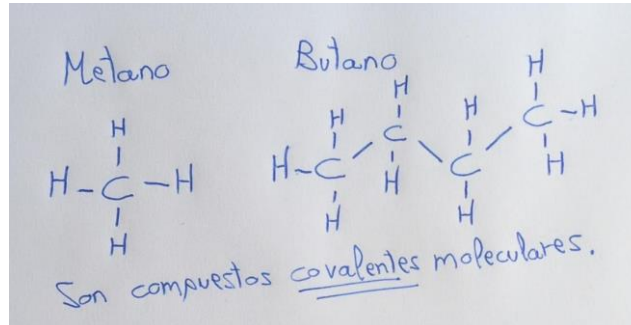 Metano
Butano
H
H-C-H
H
H
H
H
H
H-C
C
C
C-H
H
H
H
H
Son compuestos covalentes moleculares.